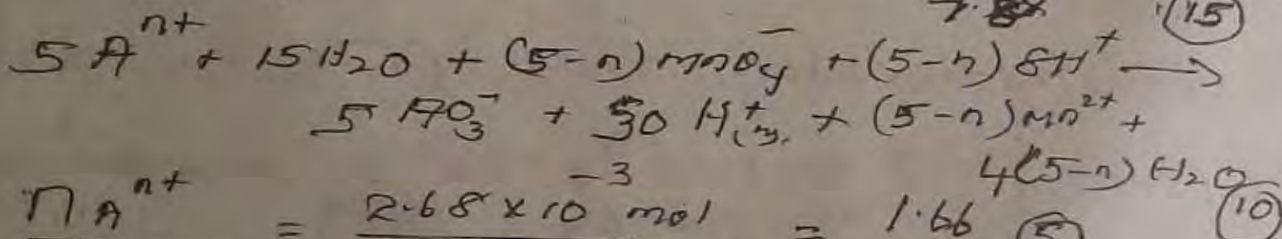 (15)
5 Aⁿ⁺ + 15 H₂O + (5-n) MnO₄⁻ + (5-n) 8H⁺ →
5 AO₃⁻ + 30 H⁺ + (5-n) Mn²⁺ +
4(5-n) H₂O
n Aⁿ⁺ = 2.68 × 10⁻³ mol = 1.66 (5) (10)